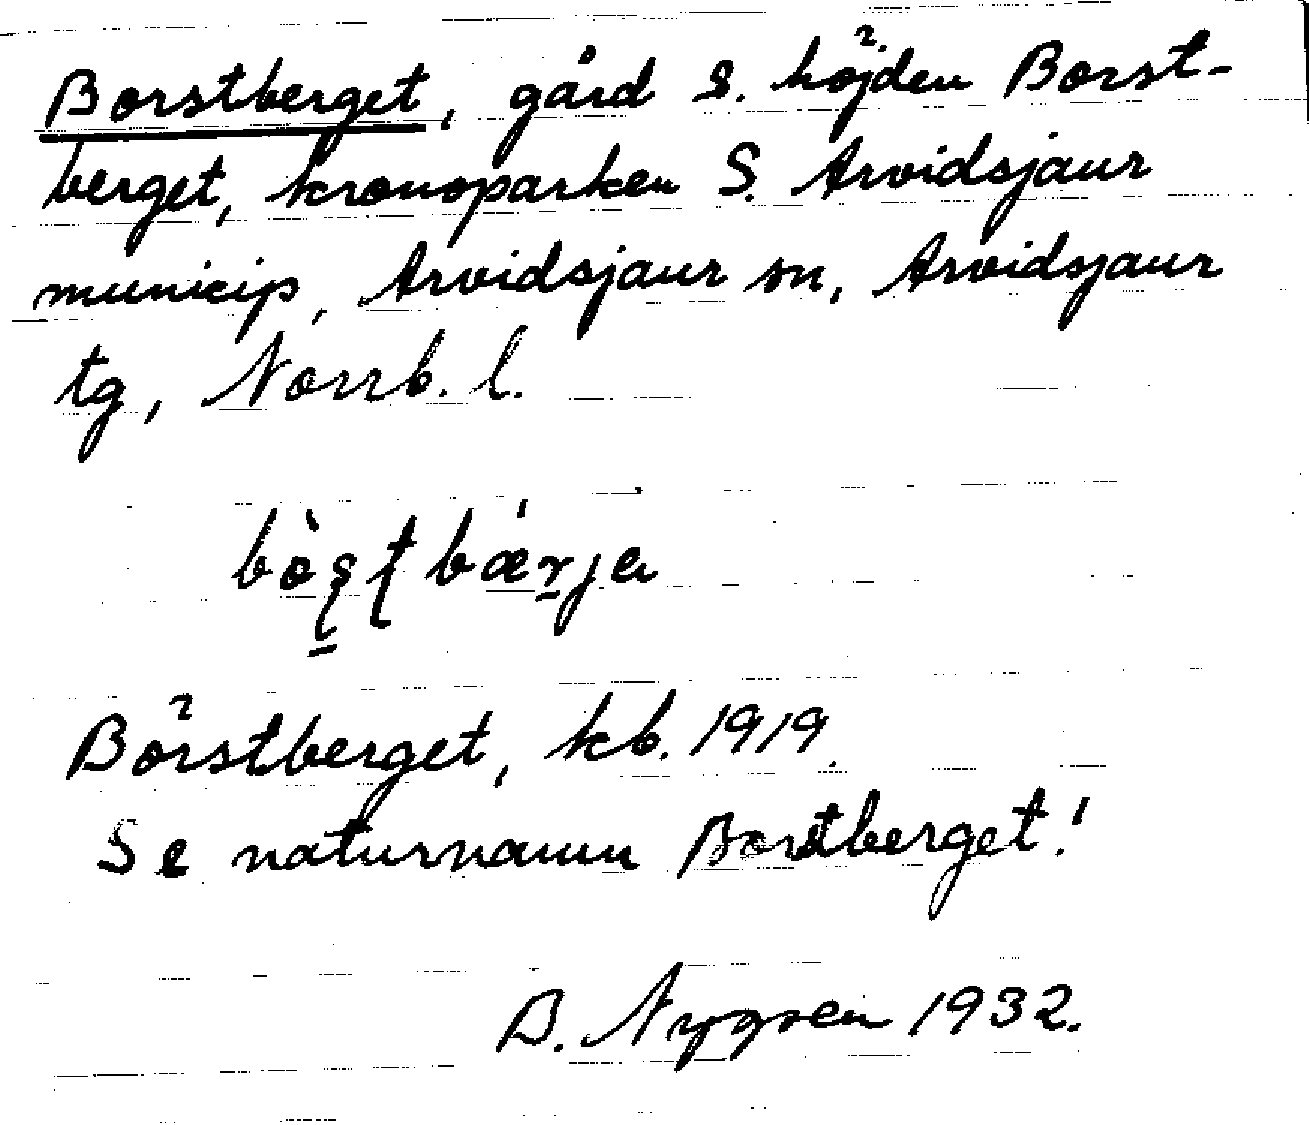 Borstberget, gård S. höjden Borst-
berget, kronoparken S. Arvidsjaur
municip, Arvidsjaur sn, Arvidsjaur
tg, Norrb. l.
bòʂʈbǽrja
Borstberget, kb. 1919.
Se naturnamn Borstberget!
B. Nygren 1932.